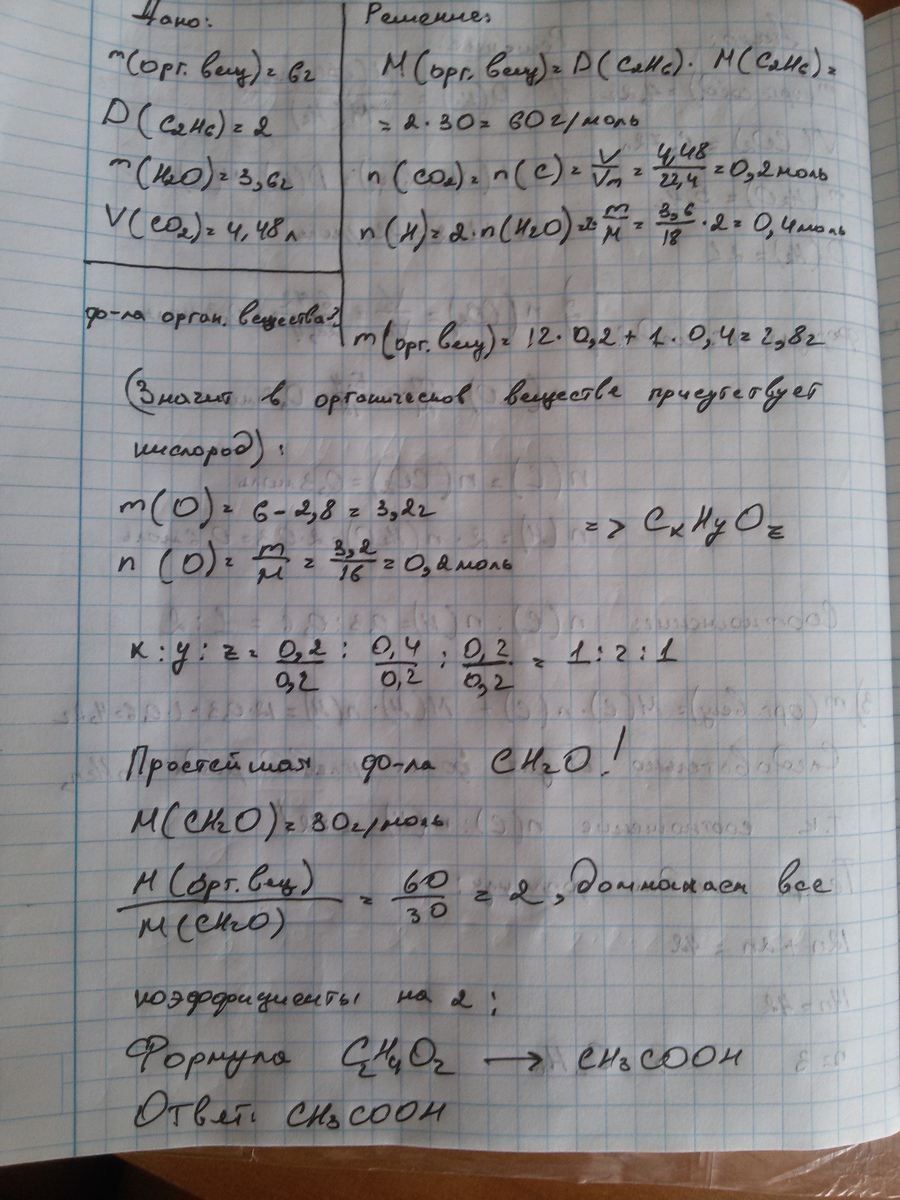 Дано:
m(орг. вещ) = 6г
D(C2H6) = 2
m(H2O) = 3,6г
V(CO2) = 4,48л
ф-ла орган. вещества?
Решение:
M(орг. вещ) = D(C2H6) · M(C2H6) =
= 2 · 30 = 60 г/моль
n(CO2) = n(C) = V/Vm = 4,48/22,4 = 0,2 моль
n(H) = 2 · n(H2O) = 2· m/M = 3,6/18 · 2 = 0,4 моль
m(орг. вещ) = 12 · 0,2 + 1 · 0,4 = 2,8г
(Значит в органическов веществе присутствует
кислород):
m(O) = 6 - 2,8 = 3,2г
n (O) = m/M = 3,2/16 = 0,2 моль
=> CxHyOz
x : y : z = 0,2/0,2 : 0,4/0,2 : 0,2/0,2 = 1 : 2 : 1
Простейшая ф-ла CH2O!
M(CH2O) = 30 г/моль
M(орг. вещ)/M(CH2O) = 60/30 = 2, домнажаем все
коэффициенты на 2;
Формула C2H4O2 → CH3COOH
Ответ: CH3COOH